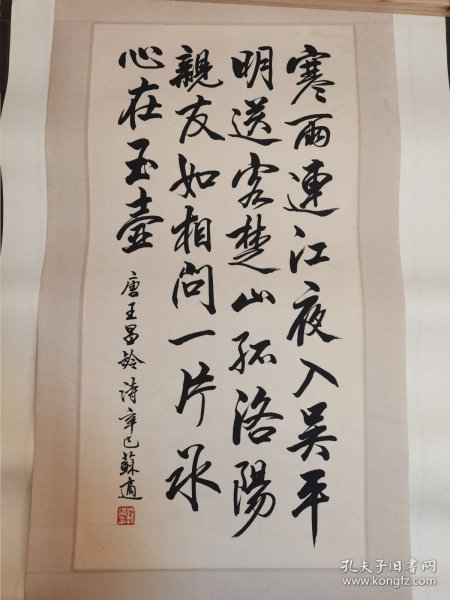 寒雨連江夜入吴平
明送客楚山孤洛陽
親友如相問一片冰
心在玉壺
唐王昌齡詩辛巳蘇適
孔夫子旧书网
www.kongfz.com